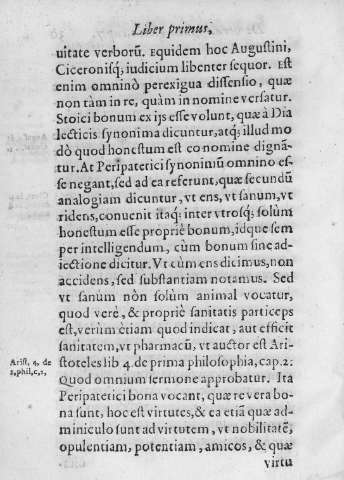 Liber primus,
uitate verborũ. Equidem hoc Augustini,
Ciceronisq́; iudicium libenter sequor. Est
enim omninò perexigua dissensio, quæ
non tàm in re, quàm in nomine versatur.
Stoici bonum ex ijs esse volunt, quæ à Dia
lecticis synonima dicuntur, atq́; illud mo
dò quod honestum est eo nomine dignã-
tur. At Peripatetici synonimũ omnino es-
se negant, sed ad ea referunt, quæ secundũ
analogiam dicuntur, vt ens, vt sanum, vt
ridens, conuenit itaq́; inter vtrosq́; solùm
honestum esse propriè bonum, idque sem
per intelligendum, cùm bonum sine ad-
iectione dicitur. Vt cùm ens dicimus, non
accidens, sed substantiam notamus. Sed
vt sanùm non solùm animal vocatur,
quod verè, & propriè sanitatis particeps
est, verùm etiam quod indicat, aut efficit
sanitatem, vt pharmacũ, vt auctor est Ari-
stoteles lib 4. de prima philosophia, cap. 2:
Arist. 4. de
Quod omnium sermone approbatur. Ita
Peripatetici bona vocant, quæ re vera bo-
na sunt, hoc est virtutes, & ea etiã quæ ad-
miniculo sunt ad virtutem, vt nobilitatẽ,
opulentiam, potentiam, amicos, & quæ
virtu